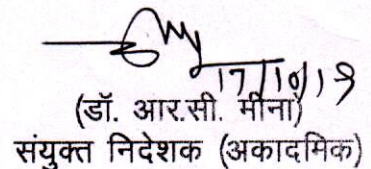 17/10/19
(डॉ. आर.सी. मीना)
संयुक्त निदेशक (अकादमिक)